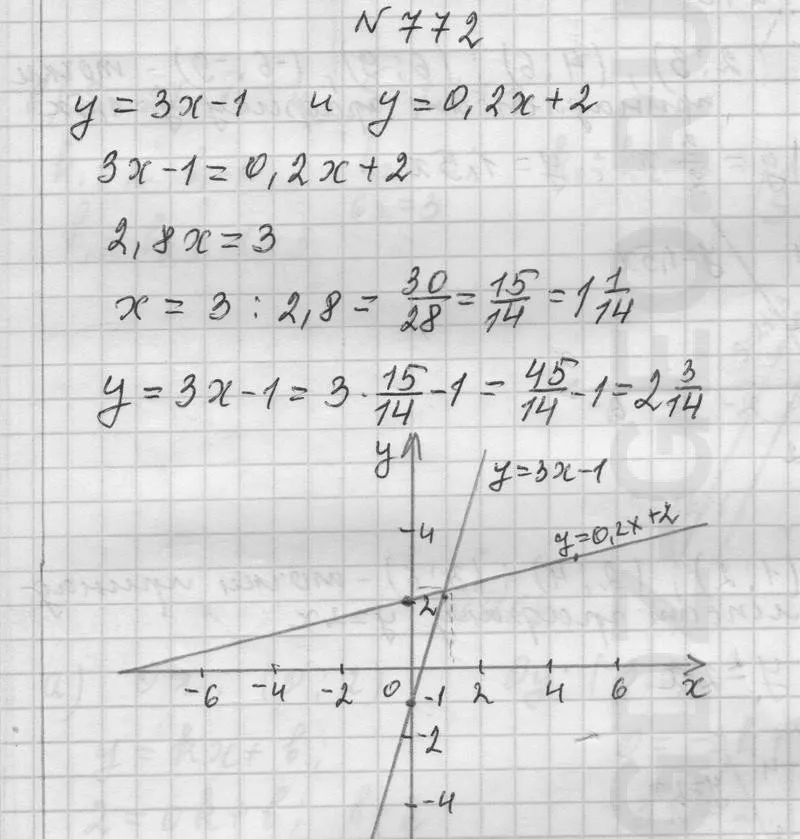 N 772
y = 3x - 1 и y = 0,2x + 2
3x - 1 = 0,2x + 2
2,8x = 3
x = 3 : 2,8 = 30/28 = 15/14 = 1 1/14
y = 3x - 1 = 3 · 15/14 - 1 = 45/14 - 1 = 2 3/14
y
y = 3x - 1
4
y = 0,2x + 2
2
-6 -4 -2 0 -1 2 4 6 x
-2
-4